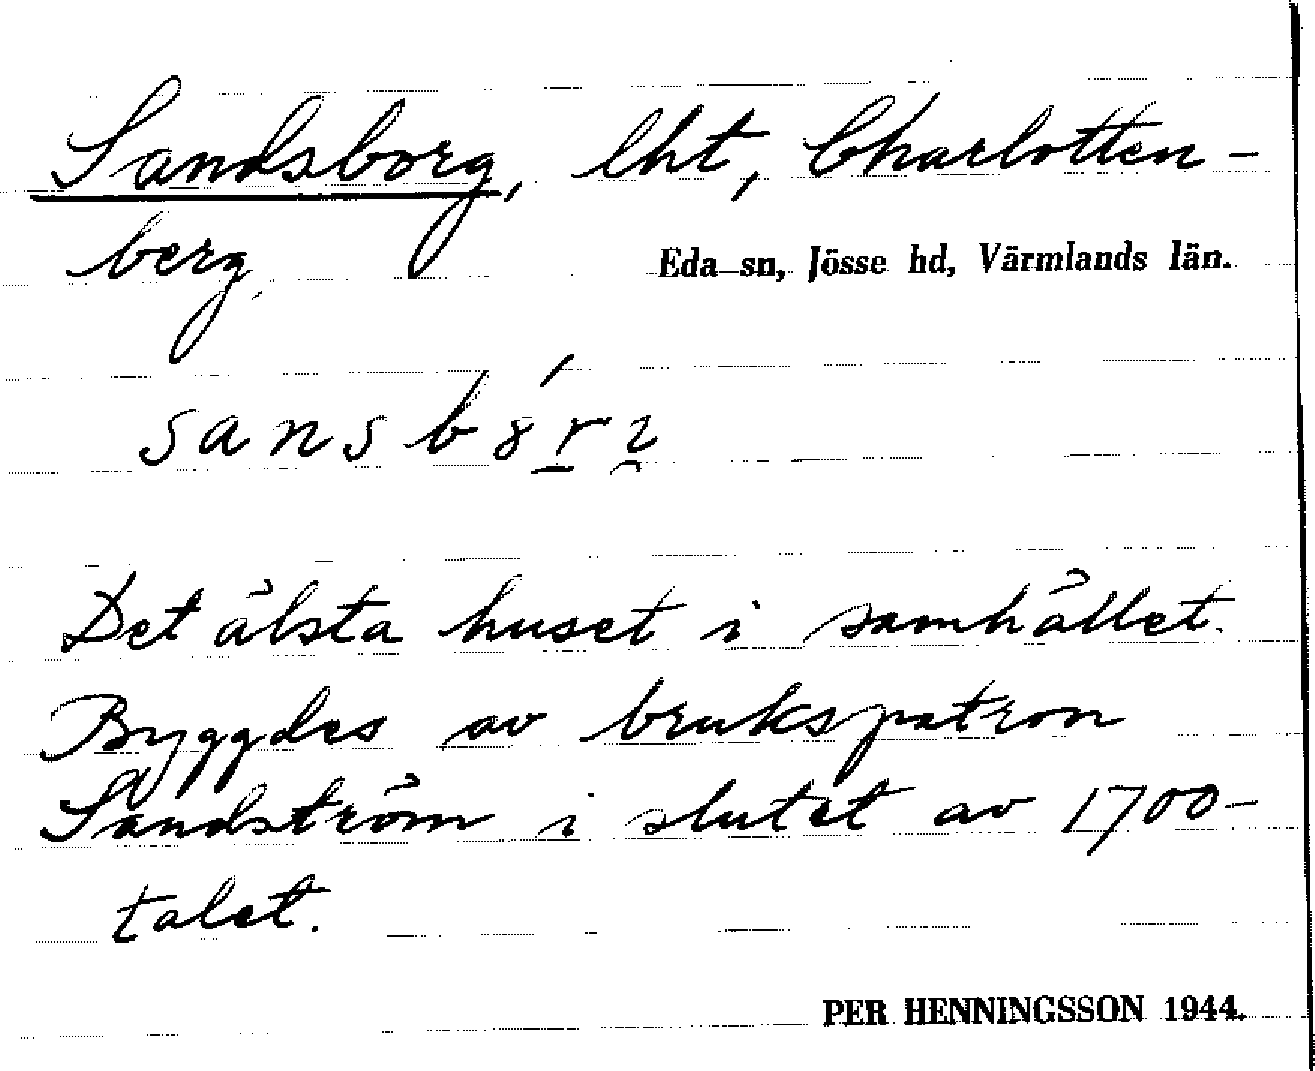 Sandsborg, lht, Charlotten-
berg.
Eda sn, Jösse hd, Värmlands län.
Det älsta huset i samhället.
Byggdes av brukspatron
Sandström i slutet av 1700-
talet.
PER HENNINGSSON 1944.